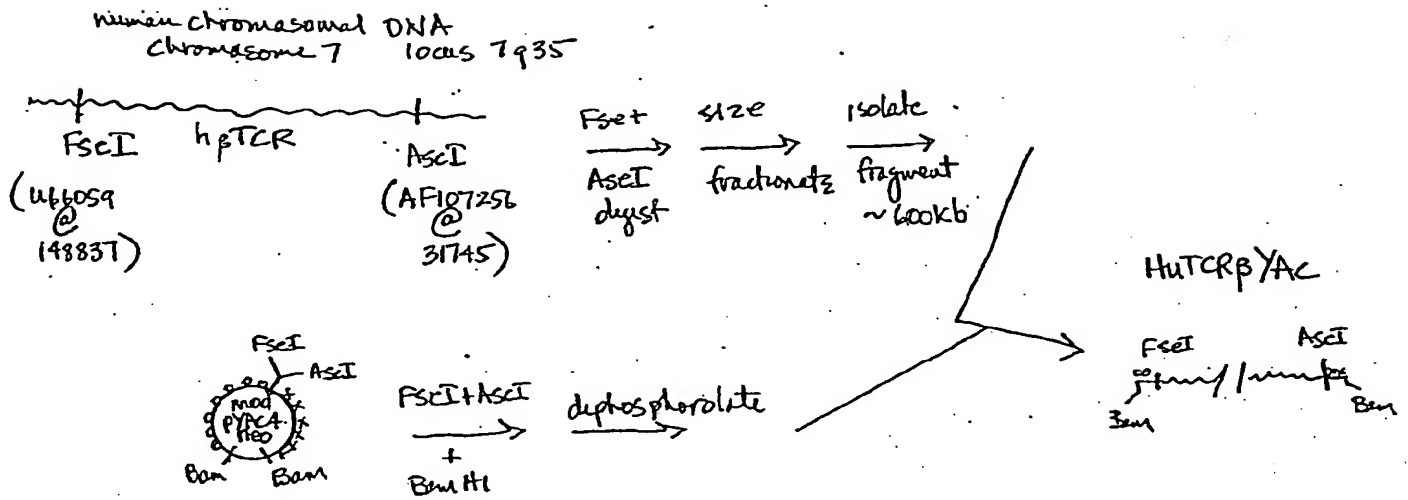 human chromosomal DNA
chromosome 7 locus 7q35
FseI hβTCR AscI
(U66059 @ 148837)
(AF107256 @ 31745)
Fse+ AscI digest
size fractionate
isolate fragment ~600kb
HuTCRβYAC
FseI AscI
Bam Bam
FseI
AscI
mod
pYAC4
neo
Bam Bam
FseI+AscI
+
Bam HI
dephosphorolate